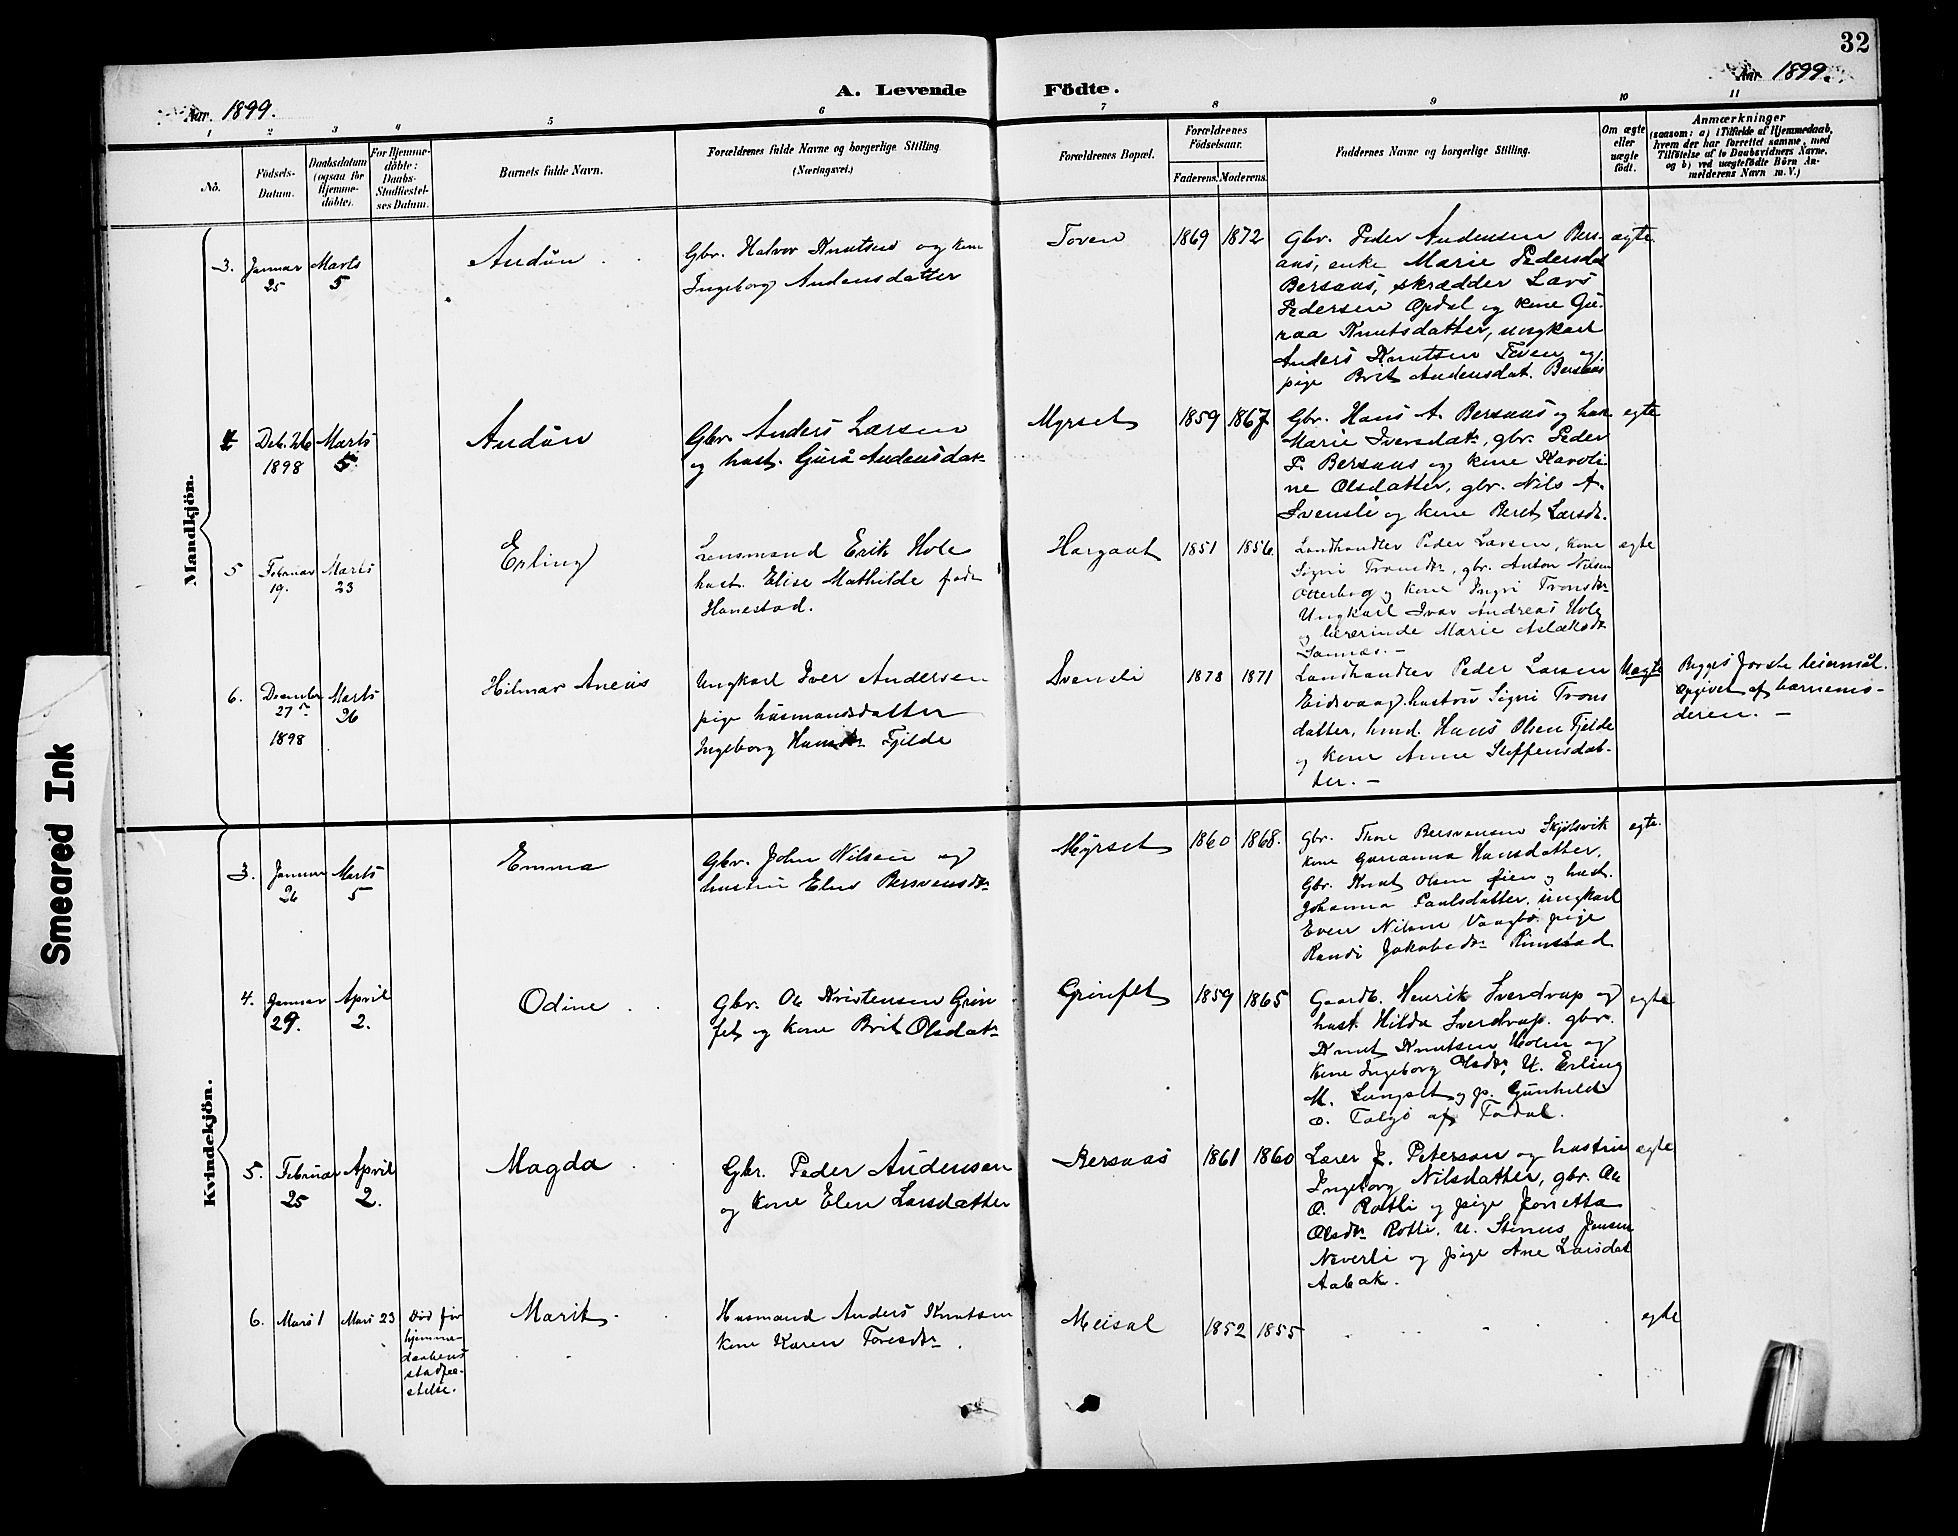 32
Aar 1899.
A. Levende Födte.
Aar 1899.
1 2 3 4 5 6 7 8 9 10 11
No.
Födsels-
Datum.
Daabsdatum
(ogsaa for
Hjemme-
döbte).
For Hjemme-
döbte:
Daabs-
Stadfæstel-
ses Datum.
Barnets fulde Navn.
Forældrenes fulde Navne og borgerlige Stilling
(Næringsvei.)
Forældrenes Bopæl.
Forældrenes
Födselsaar.
Faderens. Moderens.
Faddernes Navne og borgerlige Stilling.
Om ægte
eller
uægte
födt.
Anmærkninger
(saasom: a) i Tilfælde af Hjemmedaab,
hvem der har forrettet samme, med
Tilföielse af to Daabsvidners Navne,
og b) ved uægtefödte Börn An-
melderens Navn m. V.)
Mandkjön.
3.
Januar
25
Marts
5
Audün
Gbr. Halvor Knutsen og kone
Ingeborg Audensdatter
Toven
1869 1872
Gbr. Peder Audensen Bers-
aas, enke Marie Pedersdat
Bersaas, skrædder Lars
Pedersen Opdøl og kone Gu-
raa Knutsdatter, ungkarl
Anders Knutsen Toven og
pige Brit Audensdat. Bersaas
ægte
4
Deb. 26
1898
Marts
5
Audün
Gbr. Anders Larsen
og hust. Gurå Audensdat-
Myrset
1859 1867
Gbr. Hans A. Bersaas og hust
Marie Iversdat, gbr. Peder
P. Bersaas og kone Karoli-
ne Olsdatter, gbr. Nils A.
Svensli og kone Beret Larsdr.
egte
5
Februar
19.
Marts
23
Erling
Lensmand Erik Hole
hust. Elise Mathilde født
Hanestad.
Hargaut
1851 1856
Landhandler Peder Larsen, kone
Signi Tronsdr, gbr. Anton Nilsen
Otterbog og kone Ingri Tronsdr
Ungkarl Ivar Andreas Hole
og lærerinde Marie Aslaksdr
Sannes. –
egte
6.
December
27de
1898
Marts
26
Hilmar Aneüs
Ungkarl Iver Andersen
pige husmandsdatter
Ingeborg Hansdr Fjelde
Svensli
1878 1871
Landhandler Peder Larsen
Eidsvaag, hustru Signi Trons
datter, hmd. Hans Olsen Fjelde
og kone Anne Steffensdat-
ter. –
Uægte
Begges første leiermål.
Opgivet af barnemo-
deren. –
Kvindekjön.
3.
Januar
26
Marts
5
Emma
Gbr. John Nilsen og
hustru Elen Bersvensdr
Myrset
1860 1868.
Gbr. Tore Bersvensen Skjølsvik
kone Gurianna Hansdatter,
Gbr. Knut Olsen Øien og hust.
Johanna Paulsdatter, ungkarl
Even Nilsen Vaagbø, pige
Randi Jakobsdr Rimstad
egte.
4.
Januar
29.
April
2.
Odine
Gbr. Ole Kristensen Grin
fet og kone Brit Olsdat-
Grinfet
1859 1865
Gaardb. Henrik Sverdrup og
hust. Hilda Sverdrup, gbr.
Knut Knutsen Holm og
kone Ingeborg Olsdr, U. Erling
M. Langset og p. Gunhild
O. Talgø af Todal.
egte
5.
Februar
25
April
2.
Magda
Gbr. Peder Audensen
og kone Elen Larsdatter
Bersaas
1861 1860
Lærer J. Peterson og hustru
Ingeborg Nilsdatter, gbr. Ole
O. Rotli og pige Jonetta
Olsdr Rotli, U. Stenus Jensen
Neverli og pige Ane Larsdat
Aabak.
egte
6.
Mars 1
Mars 23
Død før
hjemme-
daabens
stadfæ-
stelse.
Marit
Husmand Anders Knutsen
kone Karen Toresdr
Meisal
1852 1855
egte
Smeared Ink